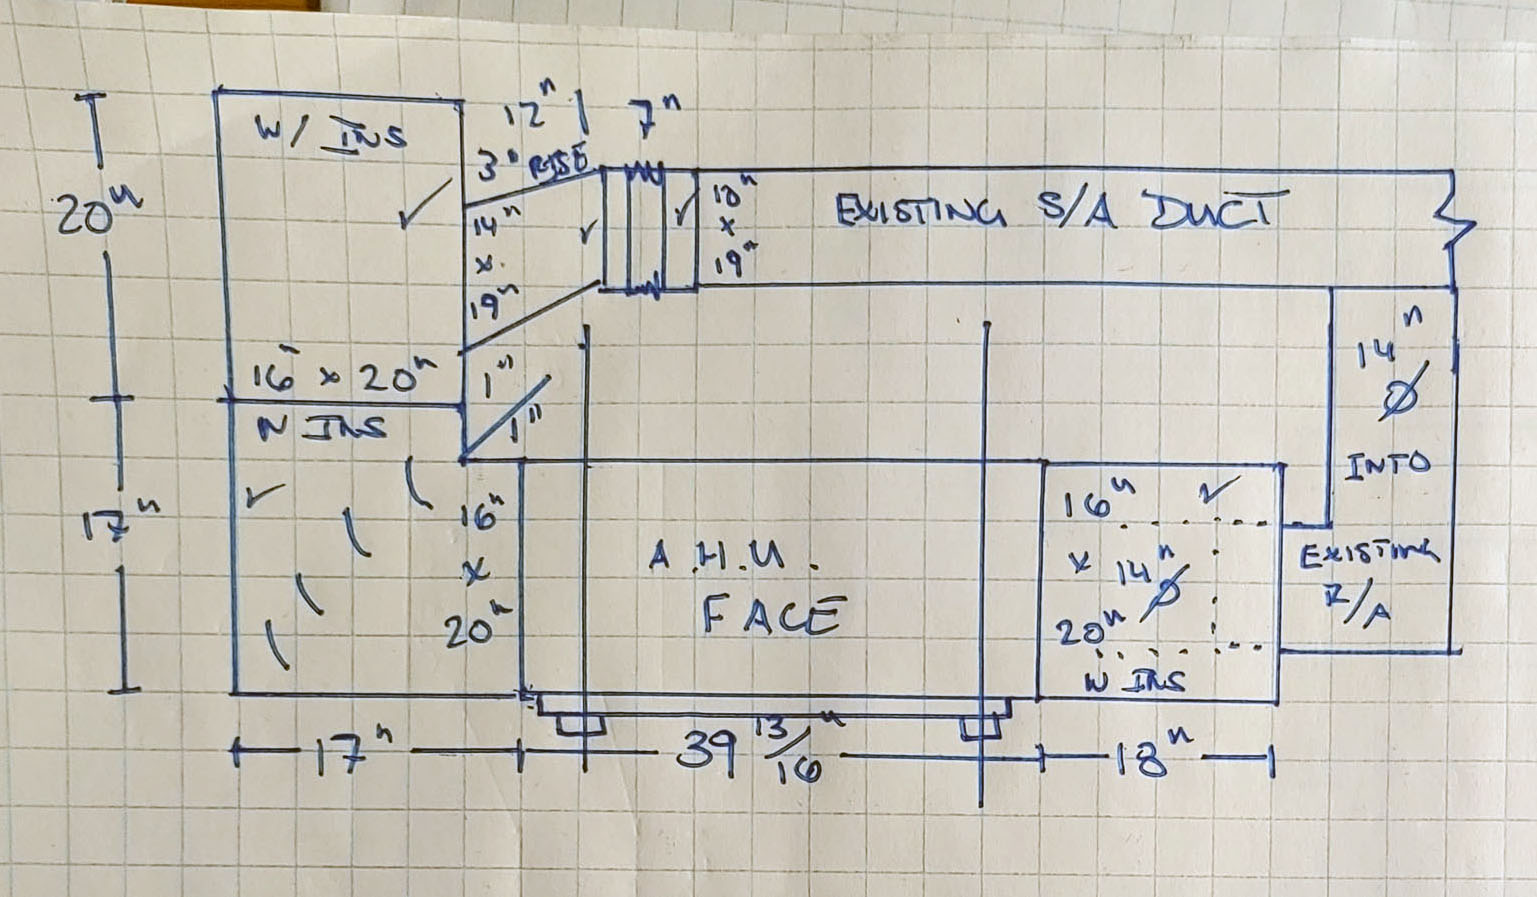 W/ INS
12" | 7"
3" RISE
20"
14"
x
19"
10"
x
19"
EXISTING S/A DUCT
14"
Ø
INTO
EXISTING
R/A
16" x 20"
W INS
1"
1"
17"
16"
x
20"
A.H.U.
FACE
16"
x 14" Ø
20"
W INS
17"
39 13/16"
18"